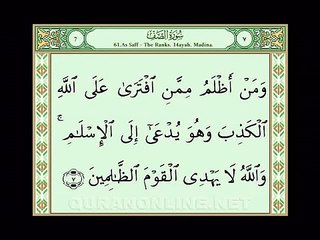 سُورَةُ الصَّفِّ
? 61.As Saff - The Banks. 14ayah. Madina. ٧
وَمَنْ أَظْلَمُ مِمَّنِ افْتَرَىٰ عَلَى اللَّهِ
الْكَذِبَ وَهُوَ يُدْعَىٰٓ إِلَى الْإِسْلَـٰمِ ۚ
وَاللَّهُ لَا يَهْدِى الْقَوْمَ الظَّـٰلِمِينَ ٧
QURANONLINE.NET